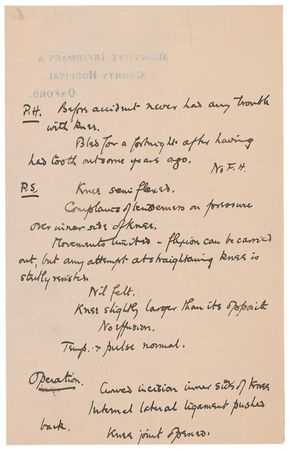 RADCLIFFE INFIRMARY &
COUNTY HOSPITAL,
OXFORD.
P.H. Before accident never had any trouble
with knee.
Bled for a fortnight after having
had tooth out some years ago.
No F.H.
P.S. Knee semiflexed.
Complains of tenderness on pressure
over inner side of knee.
Movements limited - flexion can be carried
out, but any attempt at straightening knee is
stoutly resisted
Nil felt.
Knee slightly larger than its opposite
No effusion.
Temp. & pulse normal.
Operation. Curved incision inner side of knee
Internal lateral ligament pushed
back.
Knee joint opened.